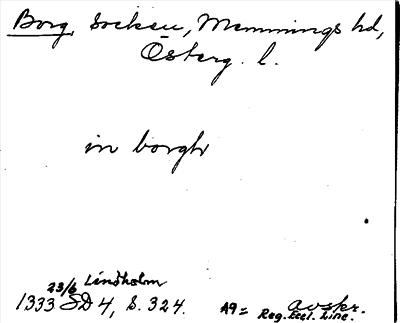 Borg, socken, Memmings hd,
Österg. l.
in borgh
23/6 Lindholm
1333 SD 4, S. 324.
A9 = avskr.
Reg. Eccl. Linc.